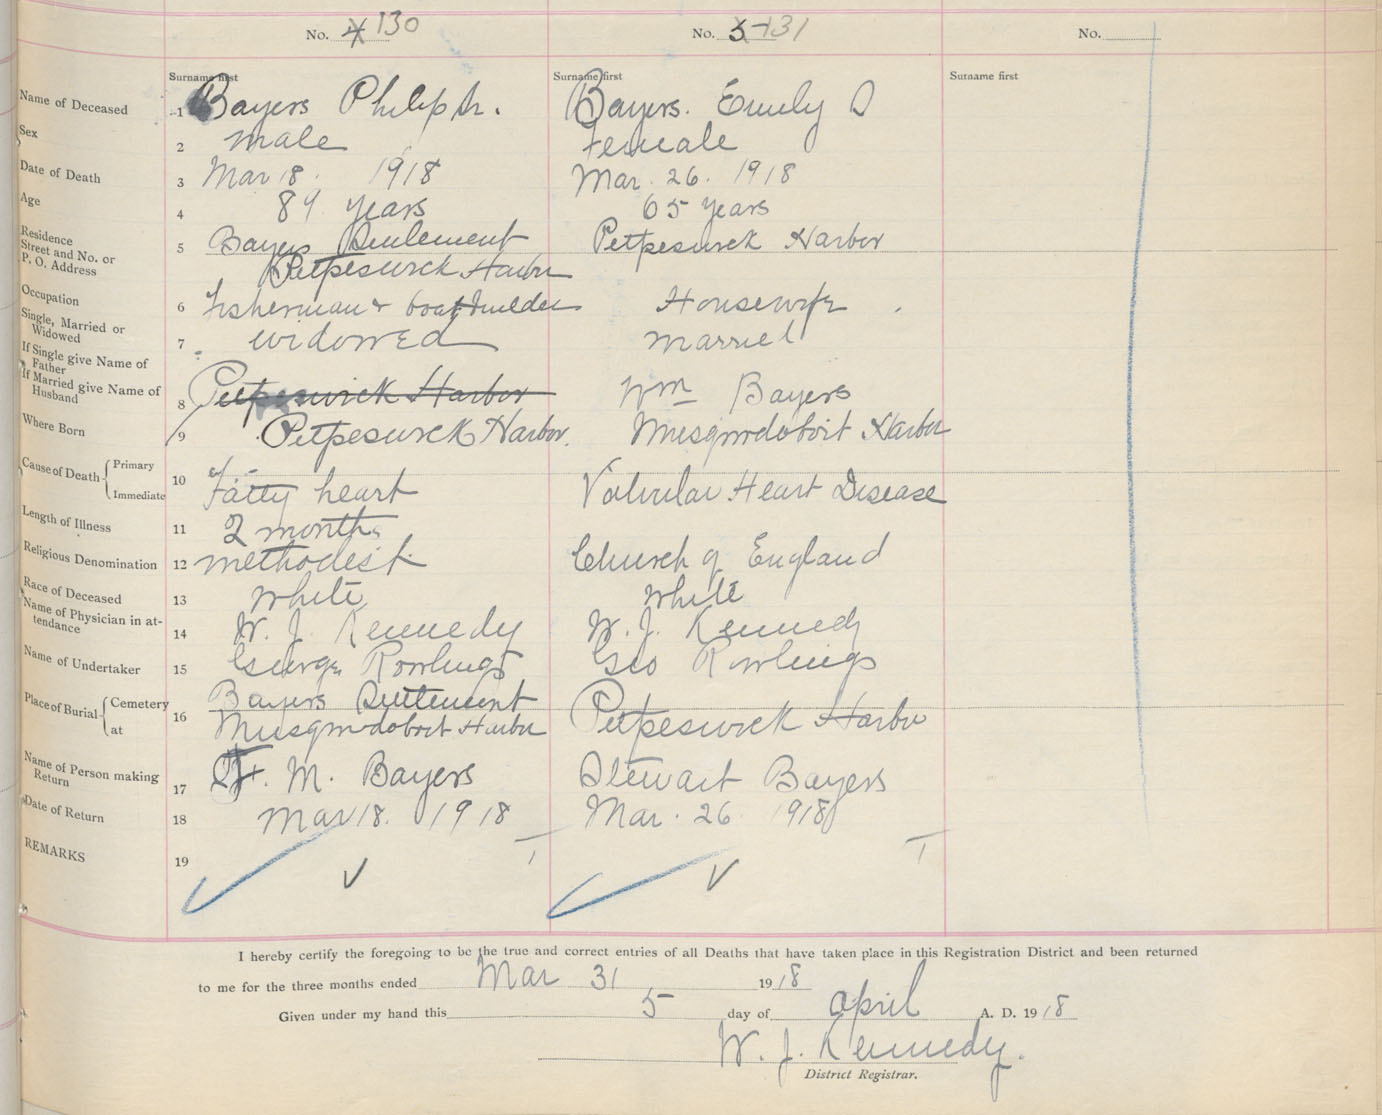 No. 4 130 No. 5 131 No.
Surname first Surname first Surname first
Name of Deceased 1 Bayers Philip Sr. Bayers. Emily S
Sex 2 male Female
Date of Death 3 Mar 18. 1918 Mar. 26. 1918
Age 4 89 years 65 years
Residence Street and No. or P. O. Address 5 Bayers Settlement Petpeswick Harbor
Petpeswick Harbor
Occupation 6 Fisherman & boat builder Housewife
Single, Married or Widowed 7 widowed married
If Single give Name of Father
If Married give Name of Husband 8 Petpeswick Harbor Wm Bayers
Where Born 9 Petpeswick Harbor. Musquodoboit Harbor
Cause of Death Primary Immediate 10 Fatty heart Valvular Heart Disease
Length of Illness 11 2 months
Religious Denomination 12 methodist. Church of England
Race of Deceased 13 white white
Name of Physician in attendance 14 W. J. Kennedy W. J. Kennedy
Name of Undertaker 15 George Rowlings Geo Rowlings
Place of Burial Cemetery at 16 Bayers Settlement Petpeswick Harbor
Musquodoboit Harbor
Name of Person making Return 17 M. Bayers Stewart Bayers
Date of Return 18 Mar 18. 1918 Mar. 26 1918
REMARKS 19
I hereby certify the foregoing to be the true and correct entries of all Deaths that have taken place in this Registration District and been returned
to me for the three months ended Mar 31 1918
Given under my hand this 5 day of April A. D. 1918
W. J. Kennedy.
District Registrar.